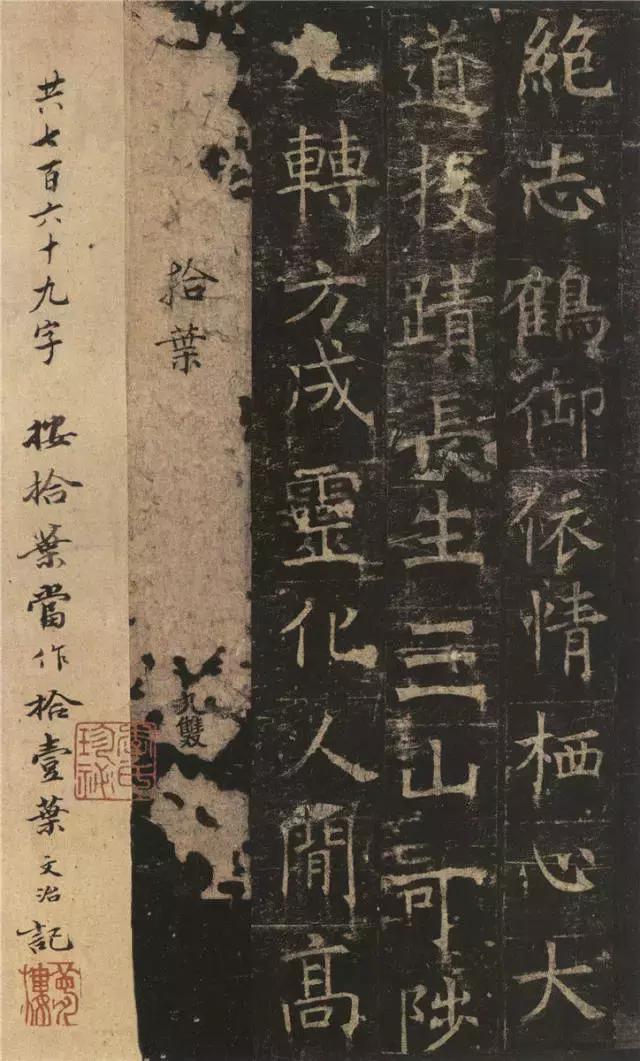 絶志鶴御依情栖心大
道投蹟長生三山可陟
九轉方成靈化人閒髙
拾葉
九雙
共七百六十九字 按拾葉當作拾壹葉 文治記
夢樓